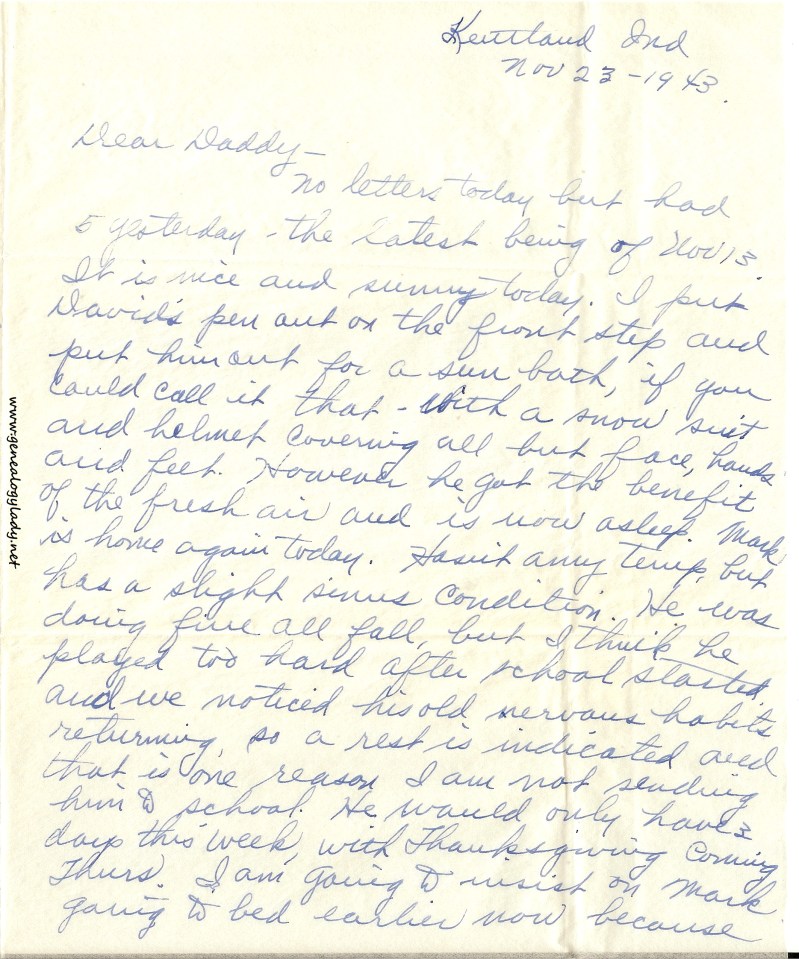 Kentland Ind
Nov 23 - 1943.
Dear Daddy -
No letters today but had
5 yesterday - the latest being of Nov 13.
It is nice and sunny today. I put
David's pen out on the front step and
put him out for a sun bath, if you
could call it that - with a snow suit
and helmet covering all but face, hands
and feet. However he got the benefit
of the fresh air and is now asleep. Mark
is home again today. Hasn't any temp, but
has a slight sinus condition. He was
doing fine all fall, but I think he
played too hard after school started,
and we noticed his old nervous habits
returning, so a rest is indicated and
that is one reason I am not sending
him to school. He would only have 3
days this week, with Thanksgiving coming
Thurs. I am going to insist on Mark
going to bed earlier now because
www.genealogylady.net